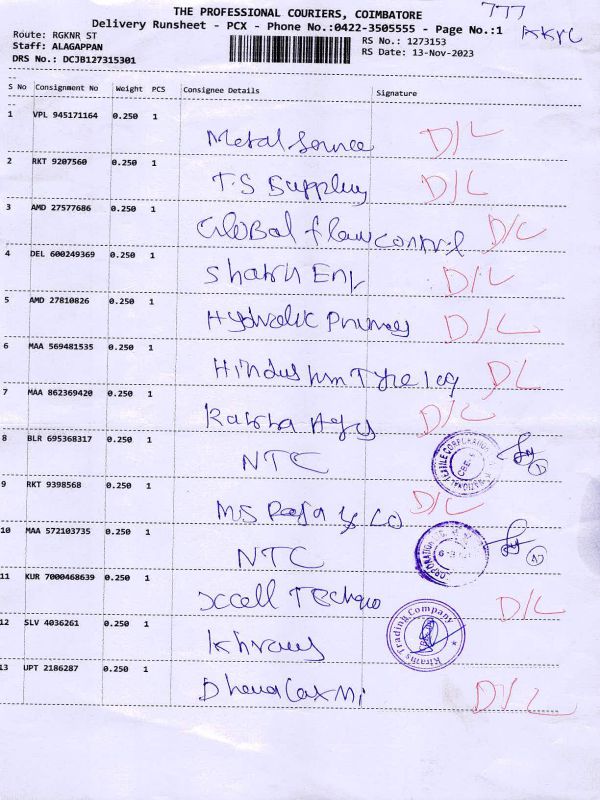 THE PROFESSIONAL COURIERS, COIMBATORE
777
Delivery Runsheet - PCX - Phone No.:0422-3505555 - Page No.:1
Route: RGKNR ST
RS No.: 1273153
Staff: ALAGAPPAN
RS Date: 13-Nov-2023
DRS No.: DCJB127315301
S No Consignment No Weight PCS Consignee Details Signature
1 VPL 945171164 0.250 1
Metal Service D/L
2 RKT 9207560 0.250 1
T.S Suppliers D/L
3 AMD 27577686 0.250 1
Global flow control D/L
4 DEL 600249369 0.250 1
D/L
5 AMD 27810826 0.250 1
Hydraulic D/L
6 MAA 569481535 0.250 1
Hindusthan DL
7 MAA 862369420 0.250 1
D/L
8 BLR 695368317 0.250 1
NTC
9 RKT 9398568 0.250 1
M/S Raja & Co D/L
10 MAA 572103735 0.250 1
NTC
11 KUR 7000468639 0.250 1
D/L
12 SLV 4036261 0.250 1
Trading Company
13 UPT 2186287 0.250 1
Dhanalaxmi D/L